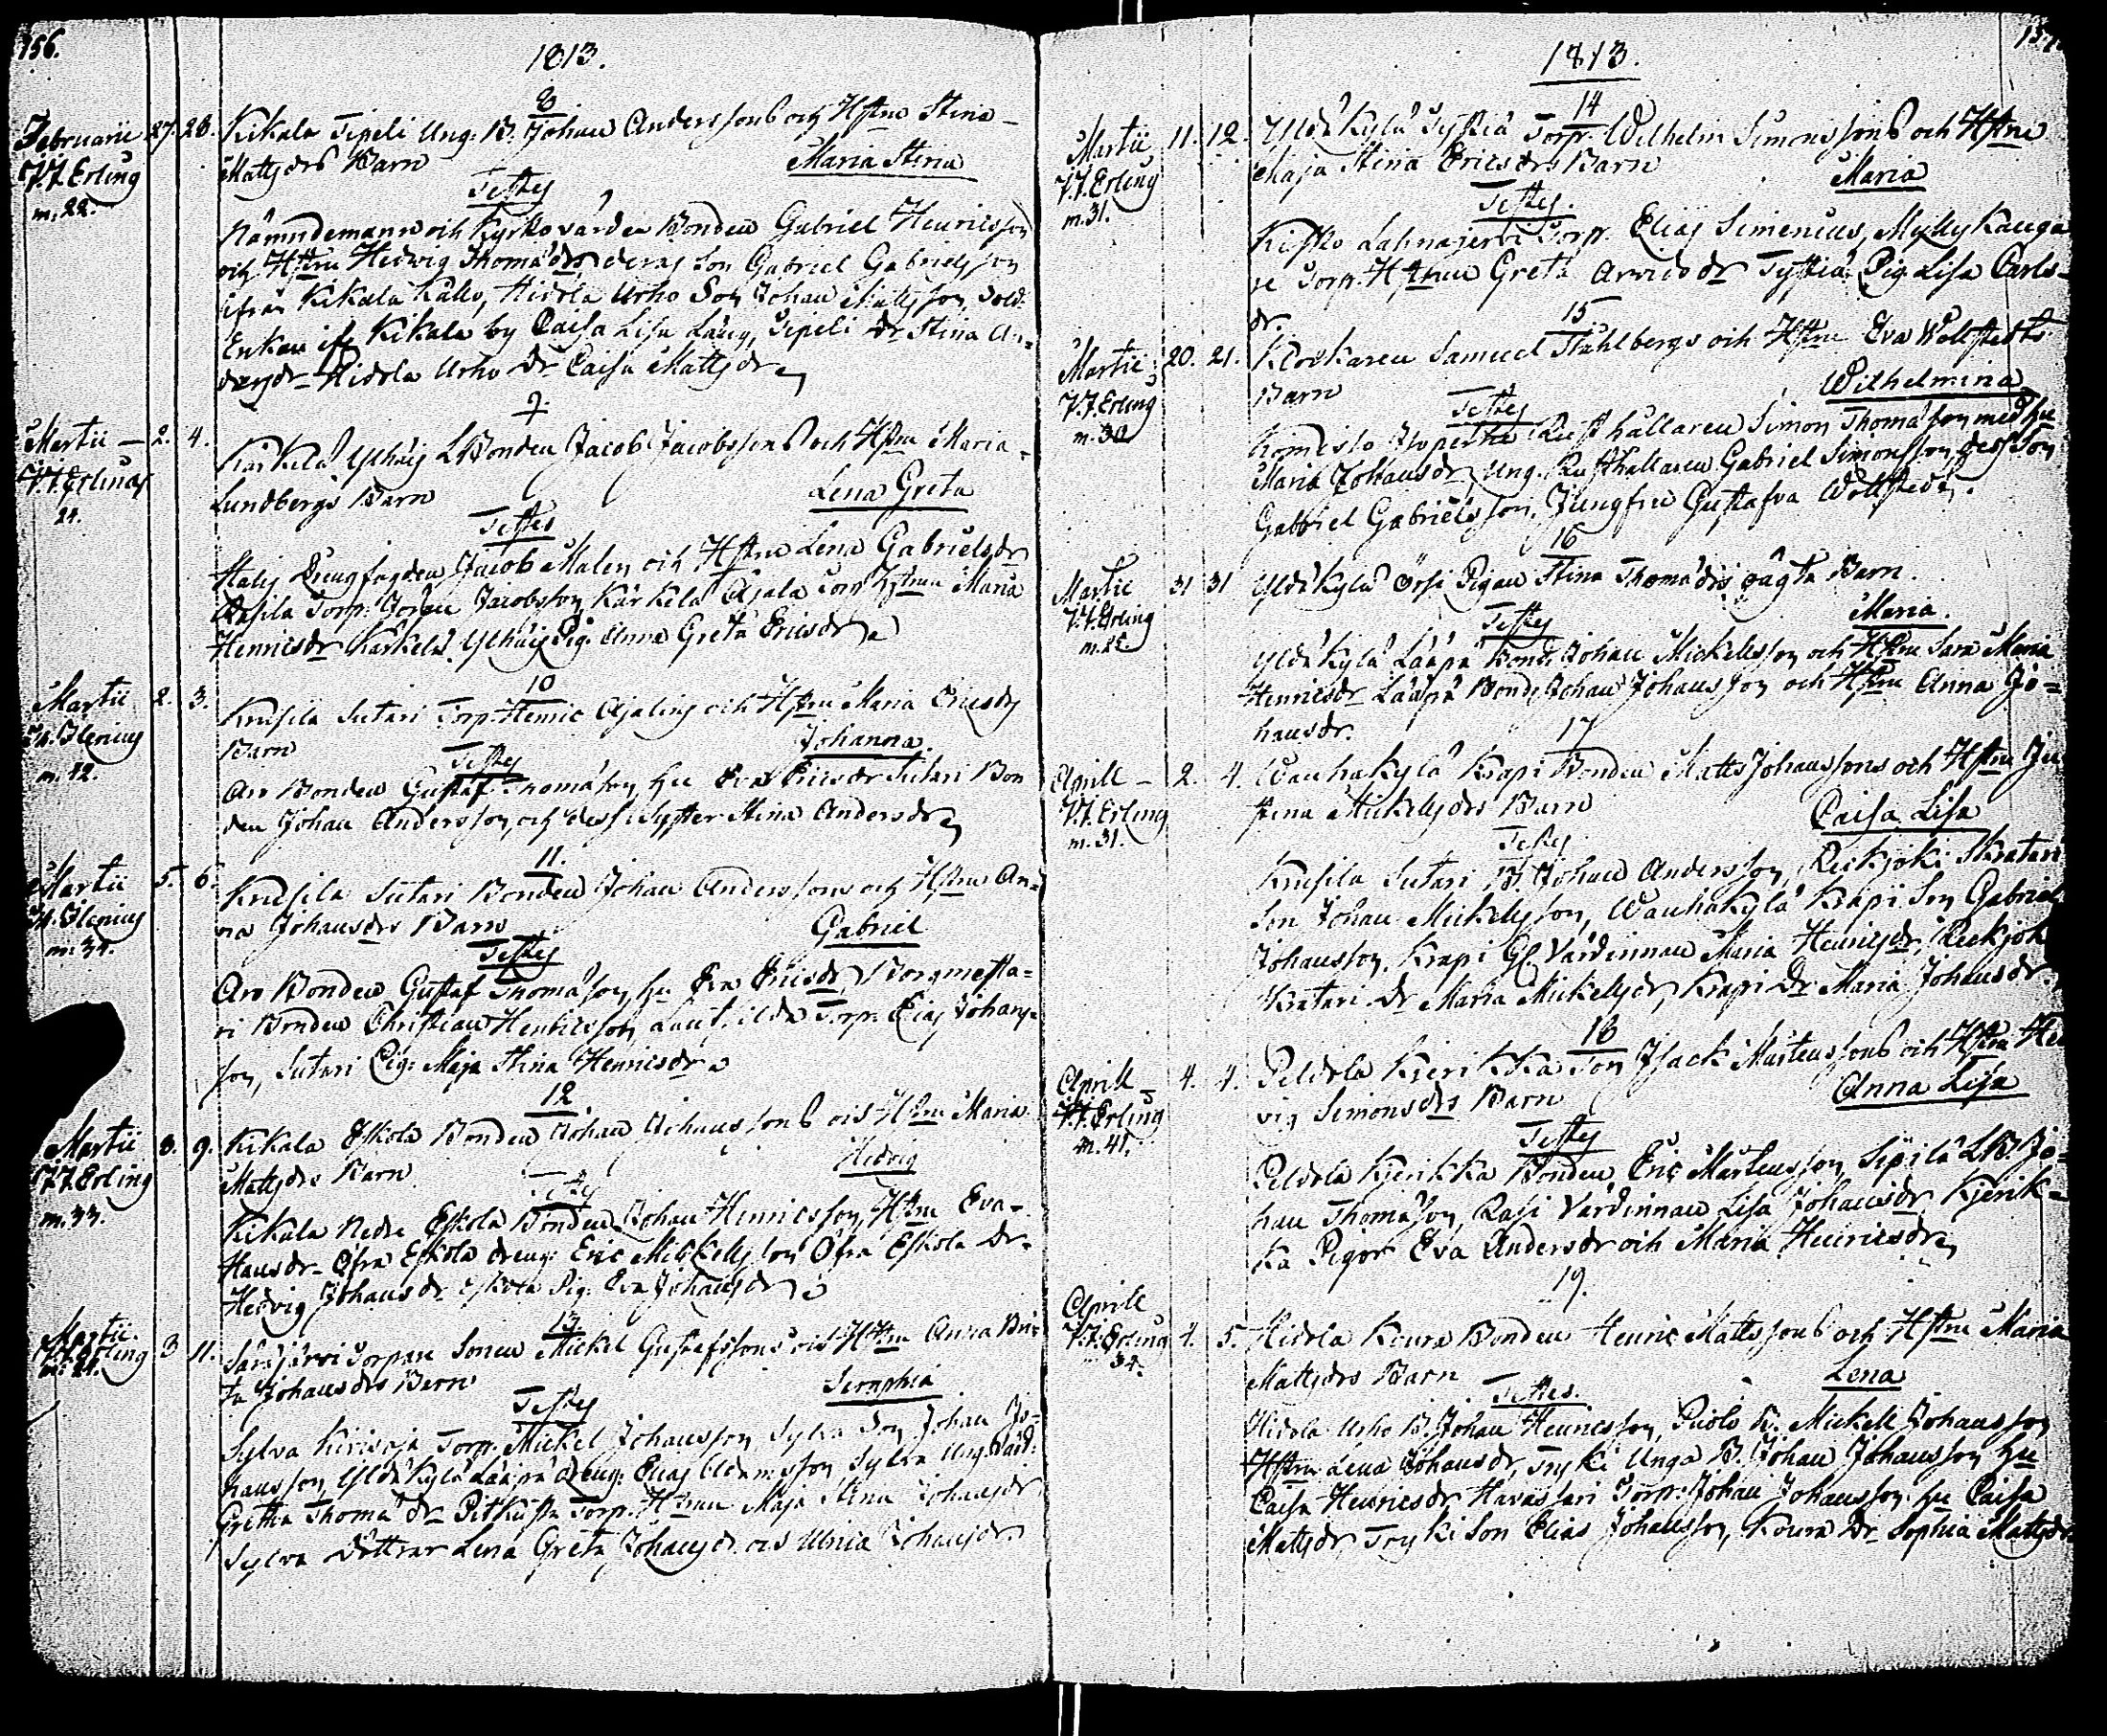 156.
1813.
8
Februarii 27. 28. Kikala Sipeli Ung. B. Johan Anderssons och Hstru Stina
J.J. Erling Mattsdrs Barn Maria Stina
m. 22. Testes
Nämndemann och Kyrkovärden Bonden Gabriel Henricsson
och Hstru Hedwig Thomædr deras Son Gabriel Gabrielsson
ifrån Kikala Kallo, Hidola Urho Son Johan Mattsson, Sold.
Enkan ifr Kikala by Caisa Lisa Lång, Sipeli Dr Stina An-
dersdr Hidola Urho Dr Caisa Mattsdr
9.
Martii 2. 4. Kärkelä Ylhäis LBonden Jacob Jacobssons och Hstru Maria
J.J. Erling Lundbergs Barn Lena Greta
24. Testes
Drengfogden Jacob Malen och Hstru Lena Gabrielsdr
Torp. Johan Jacobsson Kärkelä Ajala Torp Hstrun Maria
Henricsdr Kärkelä Ylhäis Pig. Anna Greta Ericsdr
10
Martii 2. 3. Krusila Sutari Torp. Henric Ajalins och Hstru Maria Ericsdrs
m. 42. Barn Johanna
Testes
Aro Bonden Gustaf Thomasson, hu Eva Ericsdr Sutari Bon
den Johan Andersson, och dess Syster Stina Andersdr
11.
Martii 5. 6. Krusila Sutari Bonden Johan Anderssons och Hstru An-
na Johansdrs Barn Gabriel
m. 34. Testes
Aro Bonden Gustaf Thomasson, hu Eva Ericsdr, Borgmesta-
ri Bonden Christian Henricsson, Torp. Elias Johans-
son, Sutari Pig: Maja Stina Henricsdr
12
Martii 8. 9. Kikala Eskola Bonden Johan Johanssons och Hstru Maria
J.J. Erling Mattsdrs Barn Hedvig
m. 33. Testes
Kikala Nedre Eskola Bonden Johan Henricsson, Hstru Eva
Hansdr Öfra Eskola dreng: Eric Mickelsson Öfra Eskola Dr
Hedvig Johansdr Eskola Pig. Eva Johansdr
13
Martii 3 11. Särjärvi Torpare Sonen Mickel Gustafssons och Hstru Anna Bri-
J.J. Erling ta Johansdrs Barn Seraphia
m. 21. Testes
Sylva Kirisoja Torp. Mickel Johansson Sylva Son Johan Jo-
hansson, Yldäkylä Lääpä dreng: Elias Adamsson Sylva Ung. Värd:
Gretha Thomædr Pitkusta Torp. Hstrun Maja Stina Johansdr
Sylva Döttrar Lena Greta Johansdr och Ulrica Johansdr
1813.
14
Martii 11. 12. Yldäkylä Syssiä Torp. Wilhelm Simonssons och Hstru
J.J. Erling Maja Stina Ericsdrs Barn Maria
m. 31. Testes.
Kisko Lahnajervi Torp. Elias Simenius, Myllykanga
se Torp. Hstrun Greta Arvidsdr Syssiä Pig Lisa Carls-
dr.
15
Martii 20. 21. Klockaren Samuel Ståhlbergs och Hstru Eva Wollstedts
J.J. Erling Barn Wilhelmina
m. 30 Testes
Komisto Rusthållaren Simon Thomasson med hu
Maria Johansdr, Ung. Rusthållaren Gabriel Simonsson, dess Son
Gabriel Gabrielsson, Jungfru Gustafva Wollstedt.
16
Martii 31 31 Yldäkylä Örsi Pigan Stina Thomædrs oägta Barn.
J.J. Erling Maria.
m. 25. Testes
Yldäkylä Lääpä Bond. Johan Mickelsson och Hstru Sara Maria
Henricsdr Lääpä Bond. Johan Johansson och Hstru Anna Jo-
hansdr.
17
Aprill 2. 4. Wanhakylä Krapi Bonden Matts Johanssons och Hstru Ju
J.J. Erling stina Mickelsdrs Barn Caisa Lisa
m. 31. Testes
Krusila Sutari B. Johan Andersson, Reckjoki Skratari
Son Johan Mickelsson, Wanhakylä Krapi Son Gabriel
Johansson, Krapi Gl. Värdinnan Maria Henricsdr, Reckjok
Kratari Dr Maria Mickelsdr, Krapi Dr Maria Johansdr.
18
Aprill 4. 4. Peldola Kjerikka Son Isack Mårtenssons och Hstru Hed
J.J. Erling vig Simonsdrs Barn Anna Lisa
m. 41. Testes
Peldola Kjerikka Bonden Eric Mårtensson, Sipilä LB. Jo-
han Thomasson, Rasi Värdinnan Lisa Johansdr, Kjerik-
ka Pigor Eva Andersdr och Maria Henricsdr
19.
Aprill 4. 5. Hidola Koura Bonden Henric Mattssons och Hstru Maria
J.J. Erling Mattsdrs Barn Lena
34. Testes.
Hidola Urho B. Johan Henricsson, Puolo B. Mickell Johansson
Hstru Lena Johansdr, Tryki Unga B. Johan Johansson hu
Caisa Henricsdr Havassari Torp. Johan Johansson hu Caisa
Mattsdr, Tryki Son Elias Johansson, Koura Dr Sophia Mattsdr